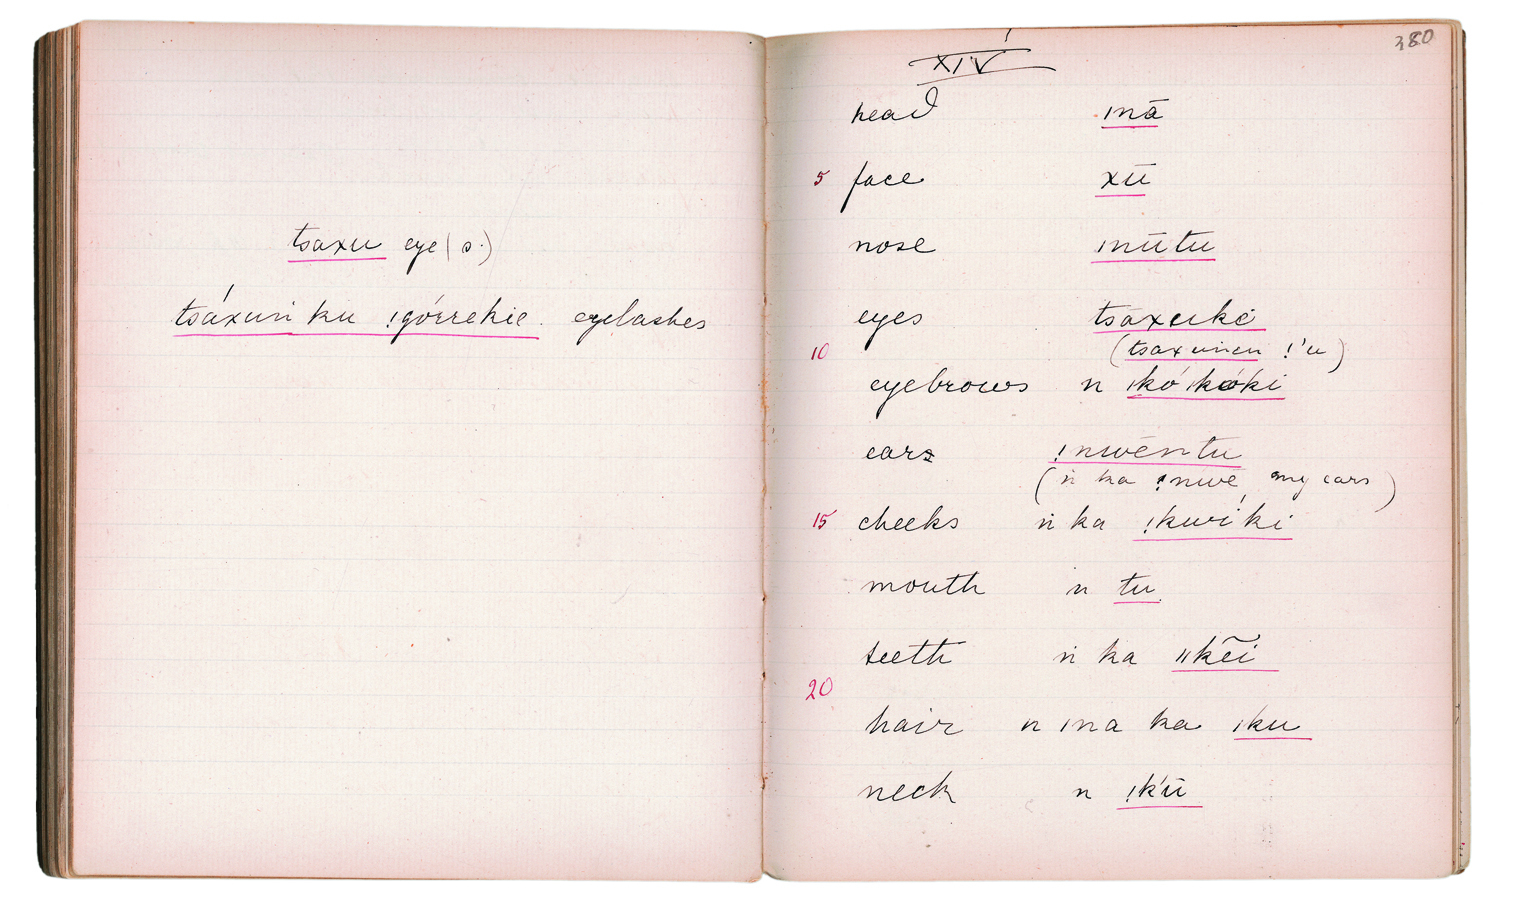 tsaxu eye (s.)
tsáxuṅ ku !górrekie. eyelashes
380
XIV
head ǀnā
5 face xū
nose ǀnūtu
eyes tsāxukē
10 (tsaxuṅcu !'u)
eyebrows n ǀkó ǀkóki
ears !nwēntu
(ṅ ka !nwē, my ears)
15 cheeks ṅ ka !kwíki
mouth n tu
teeth ṅ ka ǁkẽi
20
hair n ǀna ka ǀku
neck n !k'ū